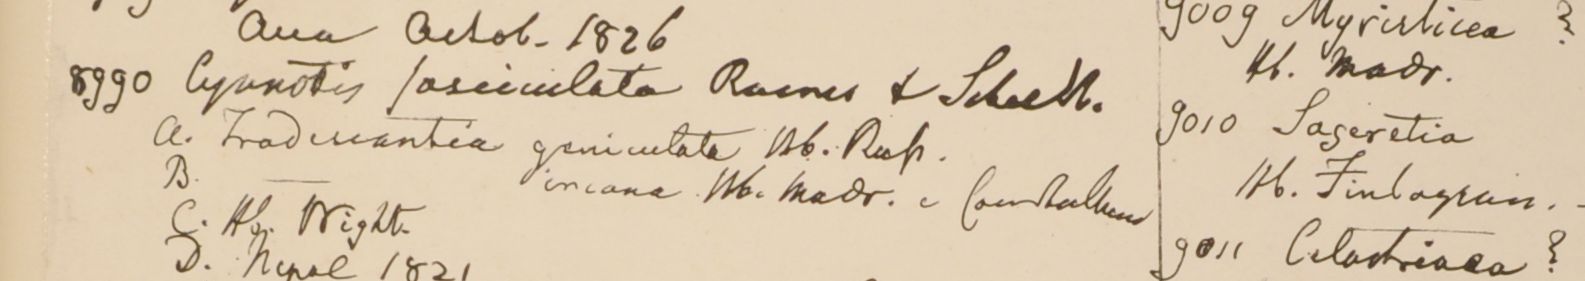 Ava Octob. 1826
8990 Cyanotis fasciculata Roemer & Schult.
a. Tradescantia geniculata Hb. Rup.
B. — incana Hb. Madr. e
C. Hb. Wight
D. Nepal 1821
9009 Myristicea ?
Hb. Madr.
9010 Sageretia
Hb. Finlayson. -
9011 Celastrinea ?